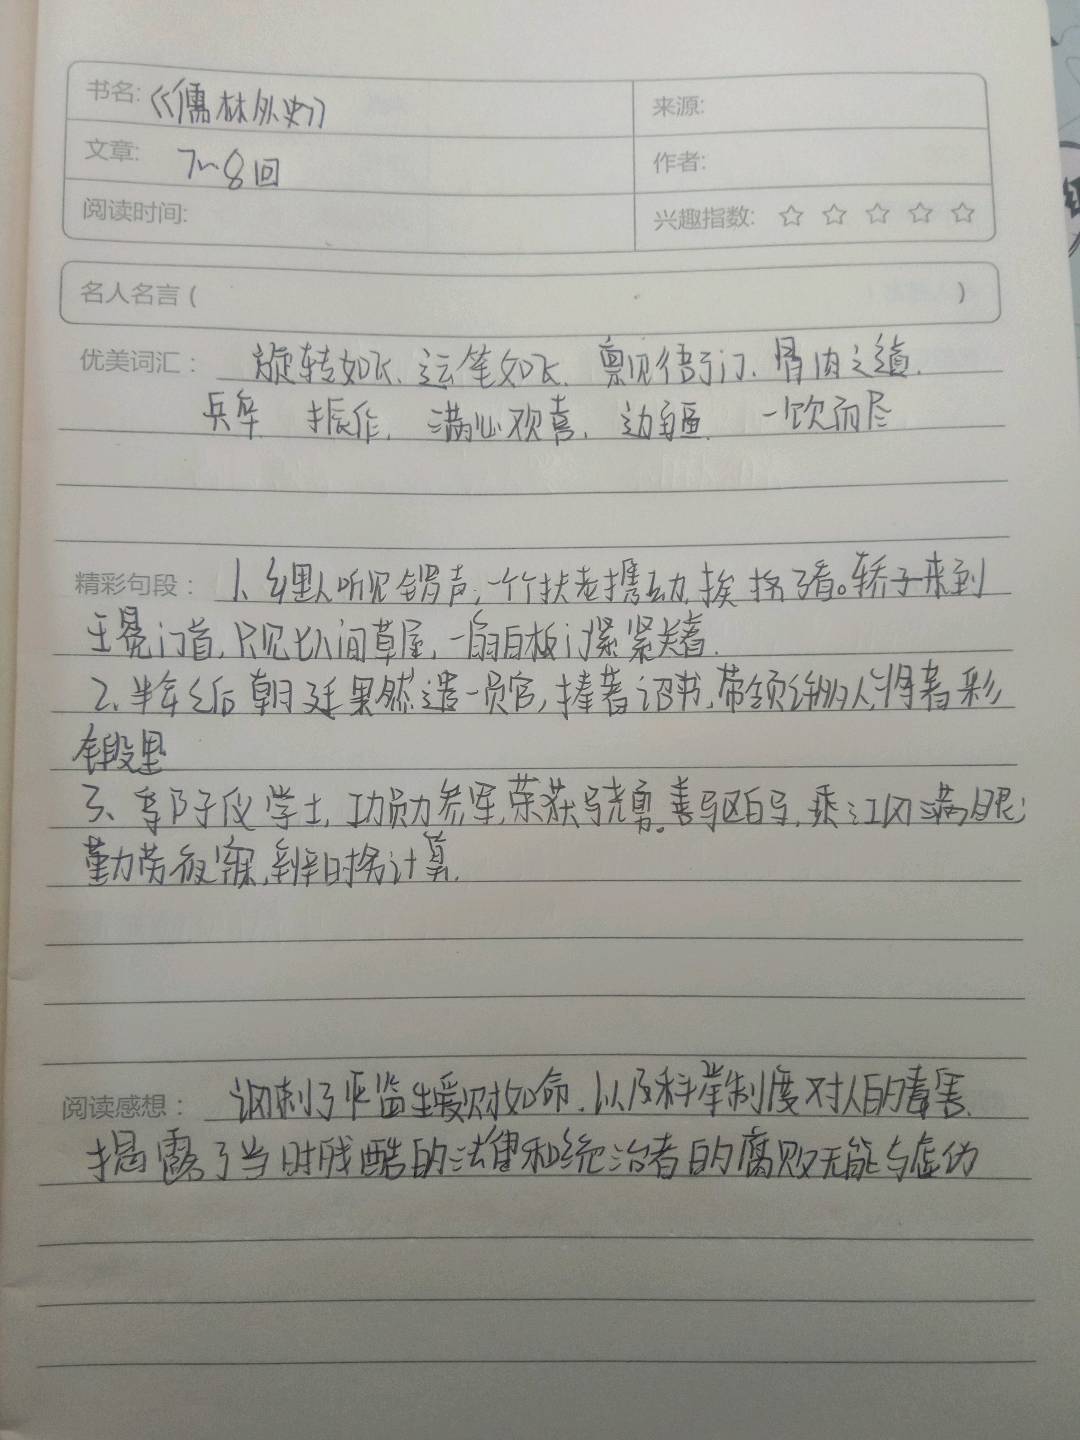 书名: 《儒林外史》 来源:
文章: 7~8回 作者:
阅读时间: 兴趣指数: ☆ ☆ ☆ ☆ ☆
名人名言 ( )
优美词汇: 旋转如飞、运笔如飞、 骨肉之道、
兵卒 振作、满心欢喜、边疆、 一饮而尽
精彩句段: 1、乡里人听见锣声,一个个扶老携幼,挨挤了看。轿子来到
王冕门首,只见七八间草屋,一扇白板门紧紧关着.
2、半年之后朝廷果然遣一员官,捧着诏书,带领许多人,将着彩
缎
3、 学士,功 参军,荣获 勇。 白马, 江风满
勤劳 计算.
阅读感想: 讽刺了严监生爱财如命,以及科举制度对人的毒害.
揭露了当时残酷的法律和统治者的腐败无能与虚伪